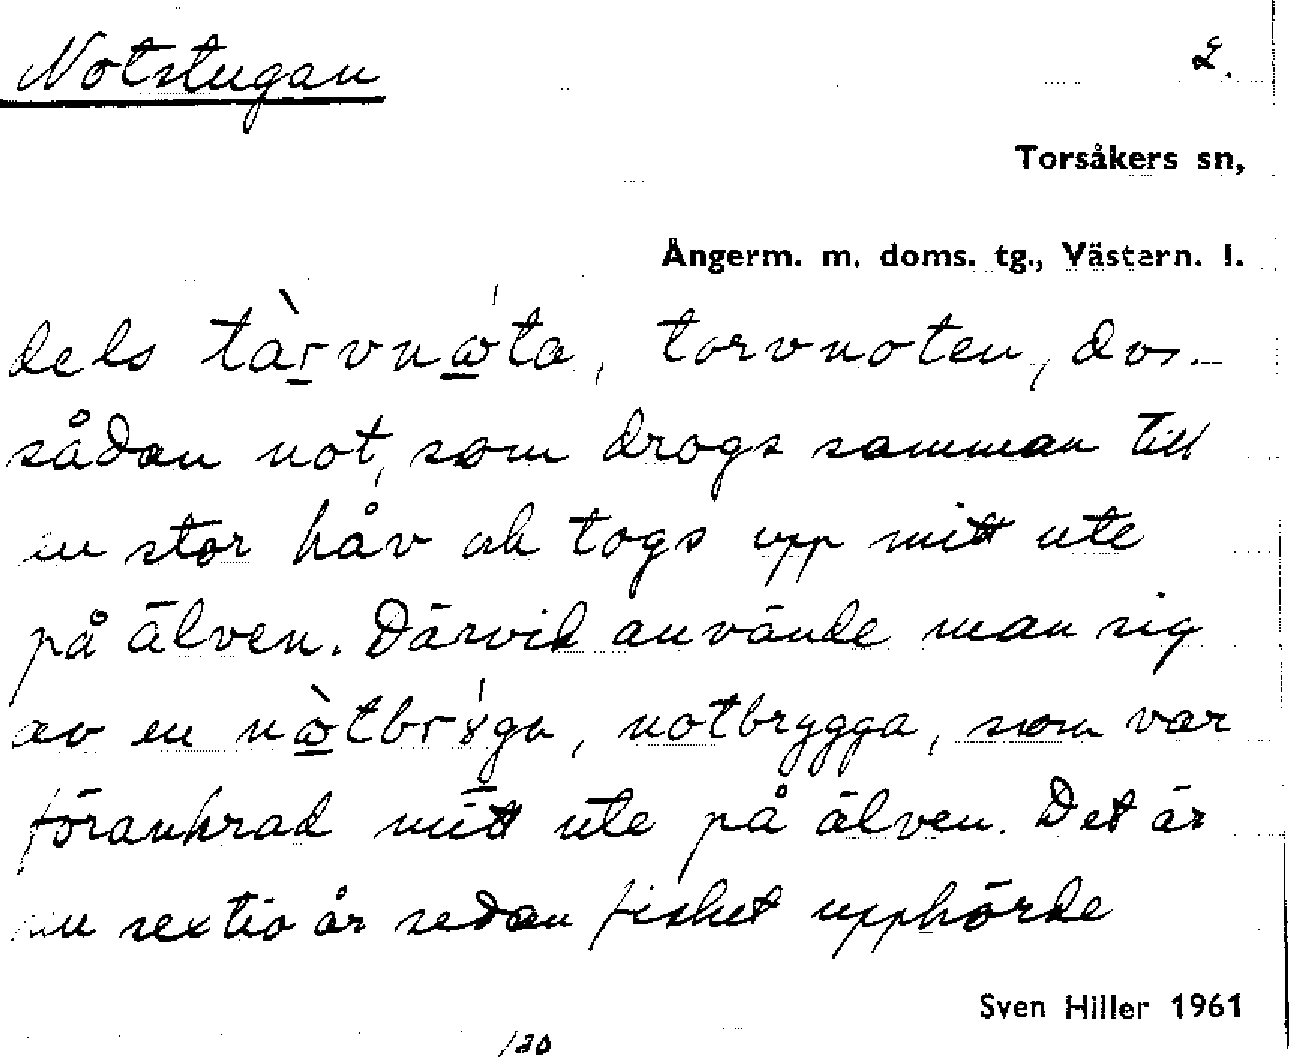 Notstugan 2.
Torsåkers sn,
Ångerm. m. doms. tg., Västern. l.
dels tàrvnǿta, torvnoten, dvs.
sådan not, som drogs samman till
en stor håv ok togs upp mitt ute
på älven. Därvid använde man sig
av en nòtbrýga, notbrygga, som var
förankrad mitt ute på älven. Det är
nu sextio år sedan fisket upphörde
Sven Hiller 1961
/20